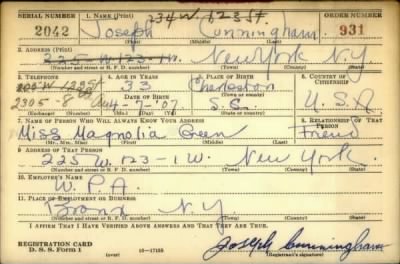 SERIAL NUMBER 1. NAME (Print) 234 W. 123 St. ORDER NUMBER
2042 Joseph Cunningham 931
(First) (Middle) (Last)
2. ADDRESS (Print)
225-W-123-1W. New York N.Y.
(Number and street or R. F. D. number) (Town) (County) (State)
3. TELEPHONE 4. AGE IN YEARS 5. PLACE OF BIRTH 6. COUNTRY OF CITIZENSHIP
33 Charleston
2305-8 DATE OF BIRTH (Town or county)
4-7-'07. S.C. U.S.A.
(Exchange) (Number) (Mo.) (Day) (Yr.) (State or country)
7. NAME OF PERSON WHO WILL ALWAYS KNOW YOUR ADDRESS 8. RELATIONSHIP OF THAT PERSON
Miss Magnolia Green Friend
(Mr., Mrs., Miss) (First) (Middle) (Last)
9. ADDRESS OF THAT PERSON
225 W. 123-1W. New York.
(Number and street or R. F. D. number) (Town) (County) (State)
10. EMPLOYER'S NAME
W.P.A.
11. PLACE OF EMPLOYMENT OR BUSINESS
Bronx N.Y.
(Number and street or R. F. D. number) (Town) (County) (State)
I AFFIRM THAT I HAVE VERIFIED ABOVE ANSWERS AND THAT THEY ARE TRUE.
REGISTRATION CARD
D. S. S. Form 1 (over) 16-17105 Joseph Cunningham
(Registrant's signature)